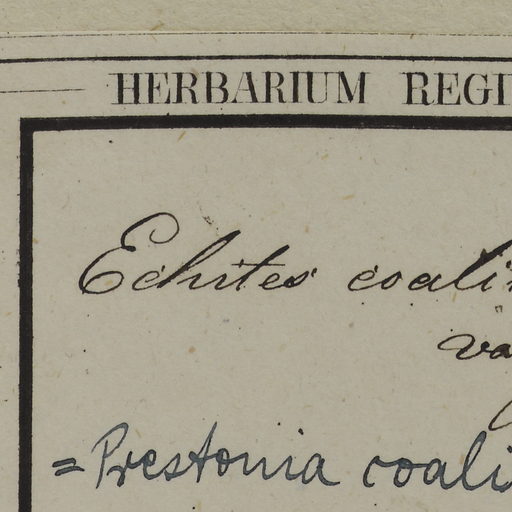 HERBARIUM REGI
Echites coali
va
= Prestonia coali